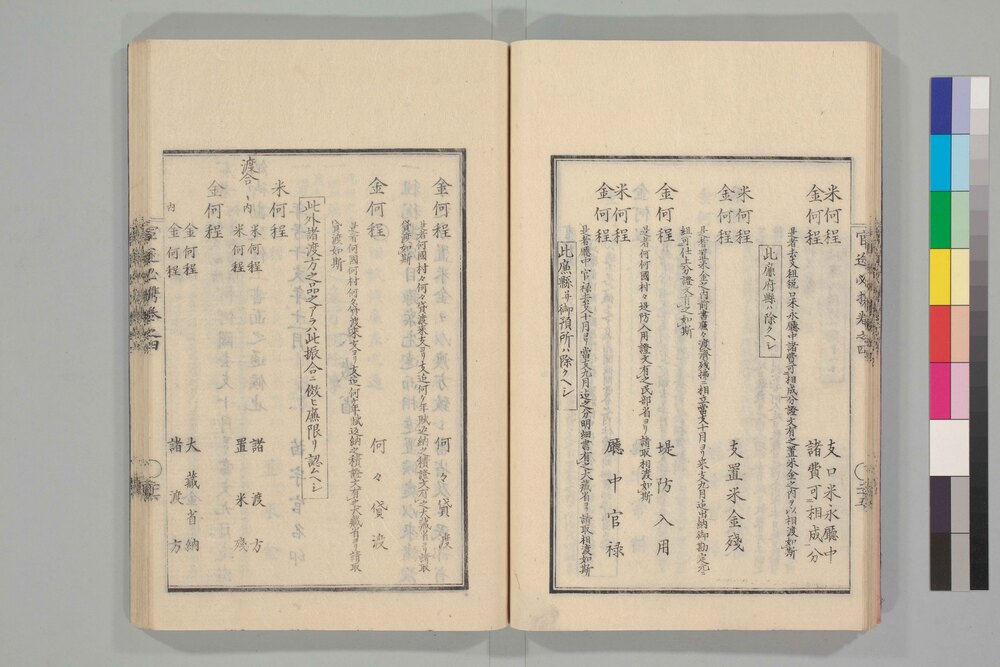 米何程 支口米永廳中
金何程 諸費可相成分
是者去支租税口米永廳中諸費可相成分證文有之置米金之内ヲ以相渡如斯
此廉府縣ハ除クヘシ
米何程
金何程 支置米金殘
是者置米金之内前書廉々渡濟殘掃ニ相立當支十月ヨリ來支九月迄出納御勘定元ニ
組可仕上分證文有之如斯
金何程 堤防入用
是者何何國村々堤防入用證文有之民部省ヨリ請取相渡如斯
米何程
金何程 廳中官禄
是者廳中官禄去支十月ヨリ當支九月迄之分明細書有之大藏省ヨリ請取相渡如斯
此廉縣并御預所ハ除クヘシ
金何程 何々貸渡
是者何國何村何々貸渡來支ヨリ支迄何ケ年賦返納之積證文有之大藏省ヨリ請取
貸渡如斯
金何程 何々貸渡
是者何國何村何々貸渡來支ヨリ支迄何ケ年賦返納之積證文有之大藏省ヨリ請取
貸渡如斯
此外諸渡方之品之アラハ此振合ニ傚ヒ廉限リ認ムヘシ
米何程
渡合
内 米何程 諸渡方
米何程 置米殘
金何程
内 金何程 大藏省納
金何程 諸渡方
官途必携卷之四